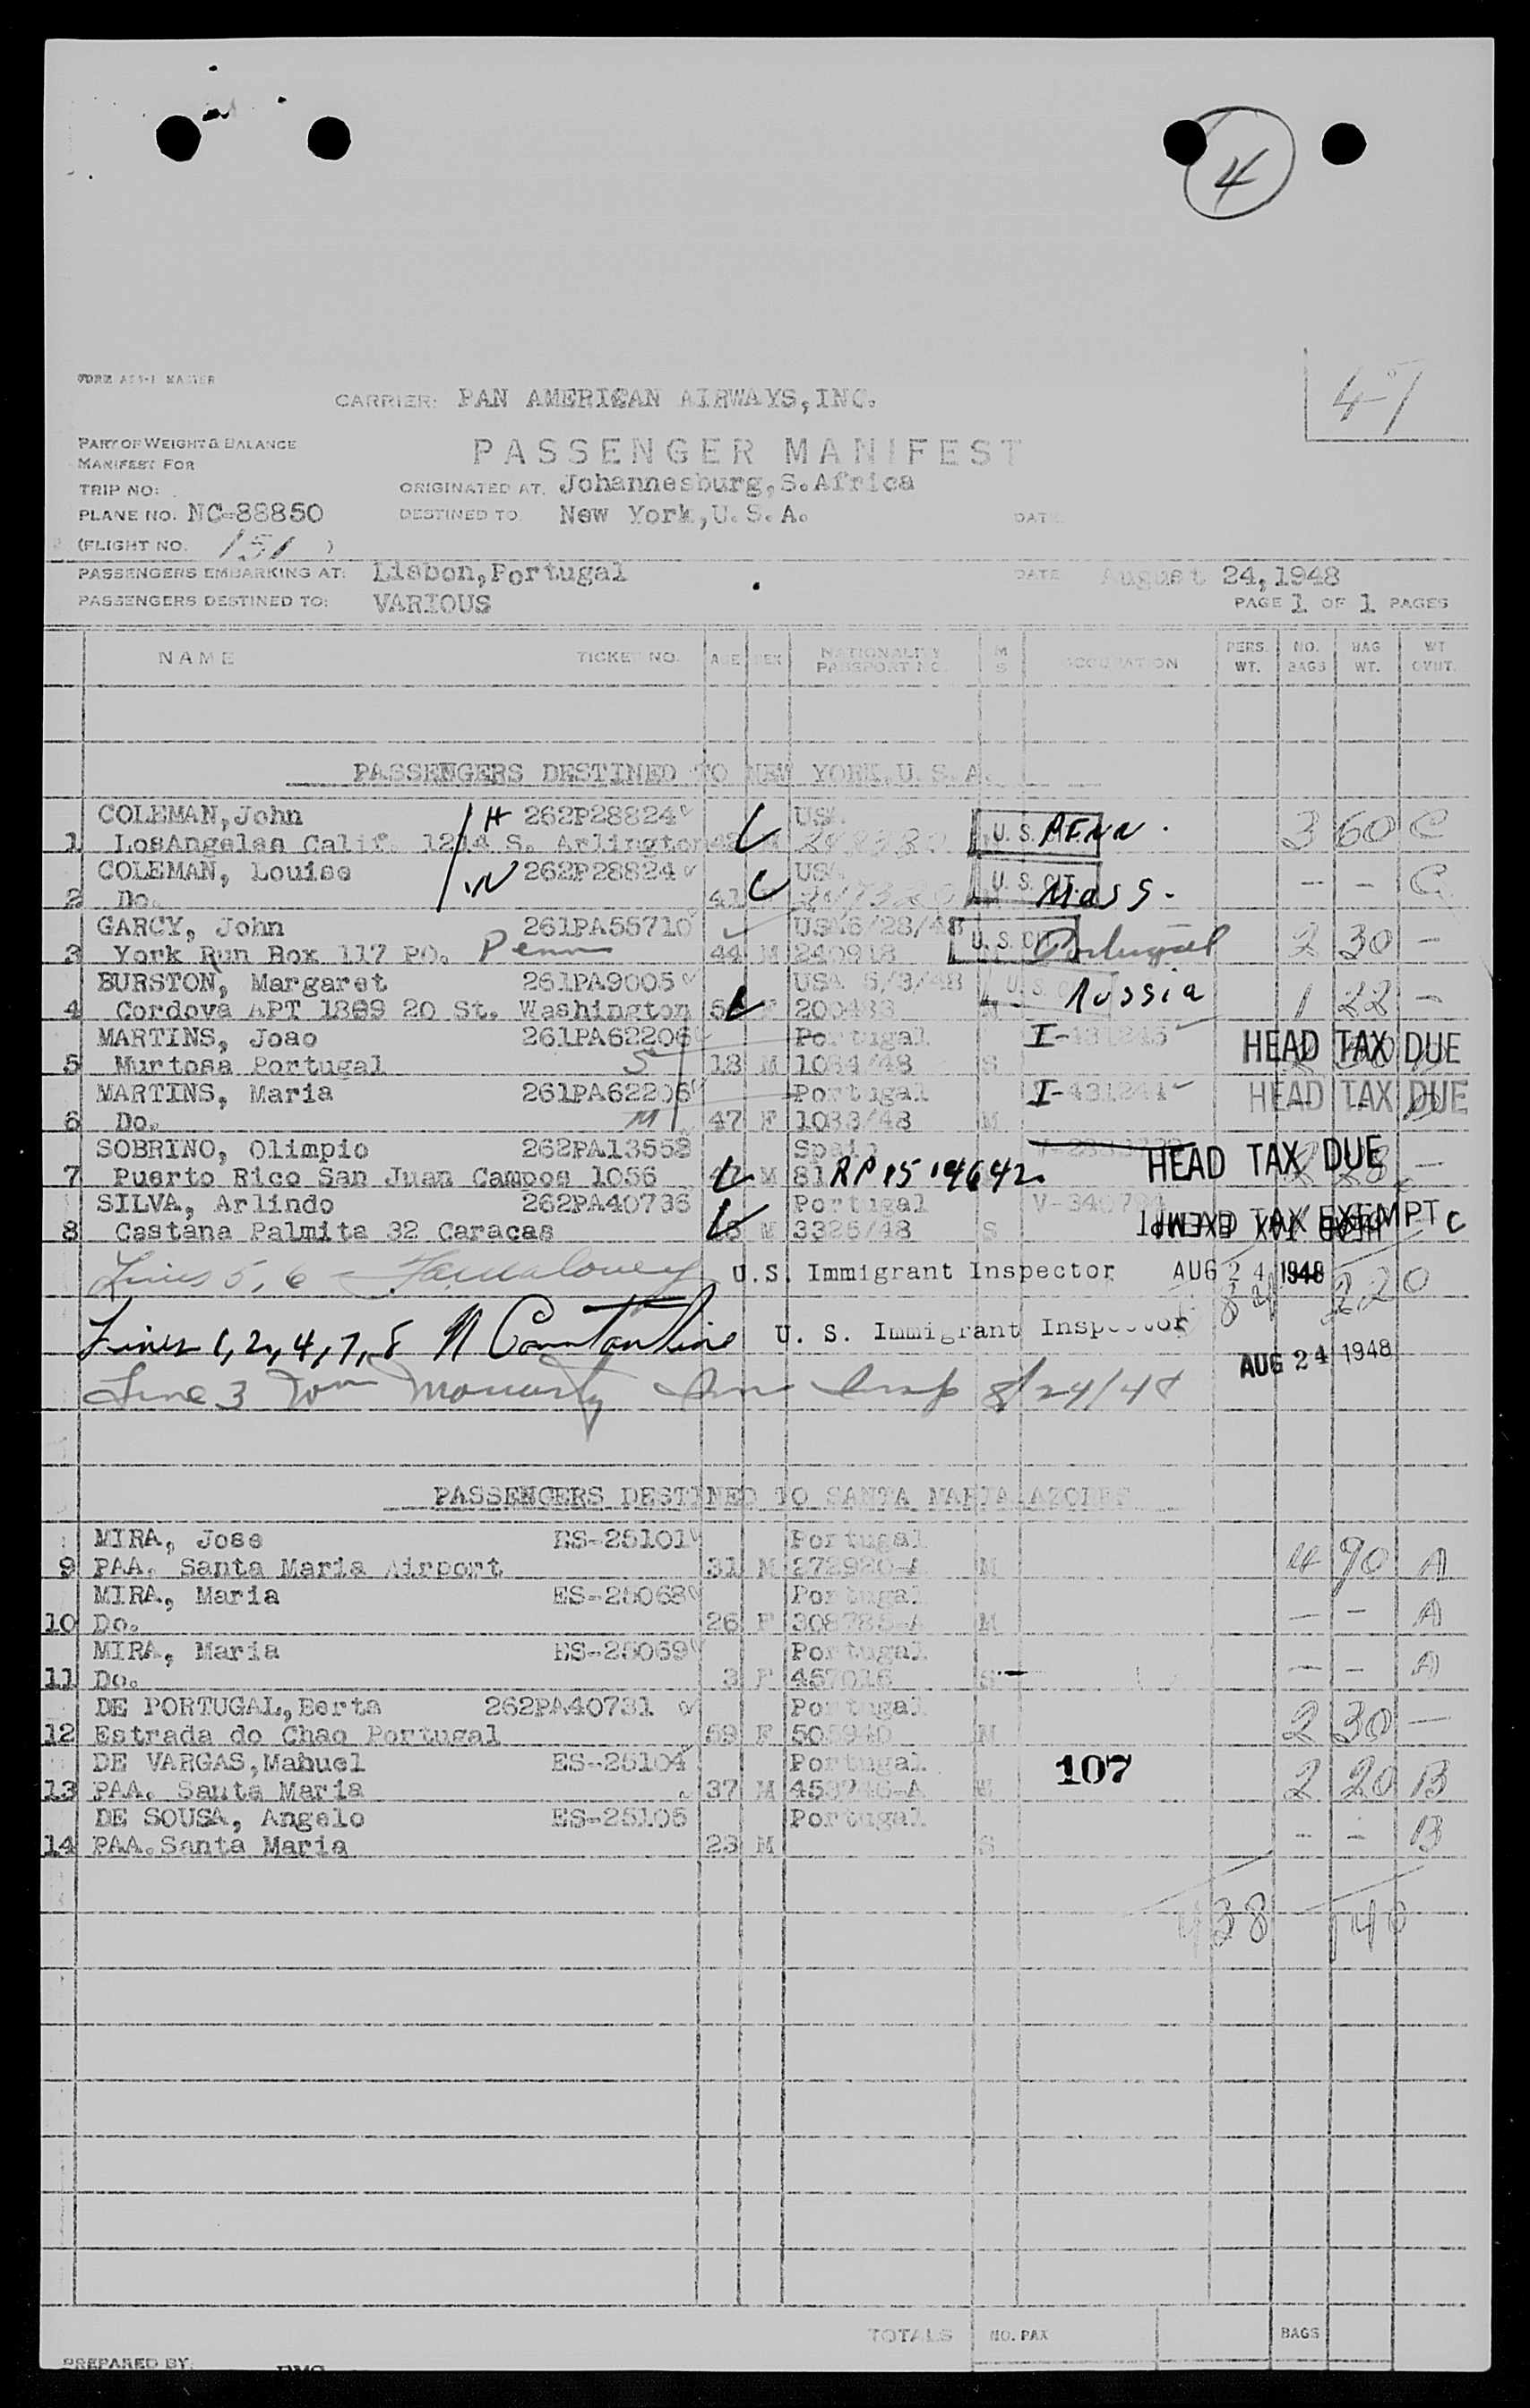 4
47
CARRIER: PAN AMERICAN AIRWAYS, INC.
PART OF WEIGHT & BALANCE
MANIFEST FOR
PASSENGER MANIFEST
TRIP NO:
ORIGINATED AT. Johannesburg, S. Africa
PLANE NO. NC-88850
DESTINED TO New York, U. S. A.
(FLIGHT NO. 151 )
PASSENGERS EMBARKING AT: Lisbon, Portugal DATE August 24, 1948
PASSENGERS DESTINED TO: VARIOUS PAGE 1 OF 1 PAGES
NAME TICKET NO. AGE SEX NATIONALITY PASSPORT NO. M S OCCUPATION PERS. WT. NO. BAGS BAG WT. WT OVHT.
PASSENGERS DESTINED TO NEW YORK, U. S. A.
COLEMAN, John H 262P28824 USA. U. S. Penn.
1 LosAngeles Calif. 1214 S. Arlington 3 60 C
COLEMAN, Louise W 262P28824 USA. U. S. CIT
2 Do. 41 Mass. - - C
GARCY, John 261PA55710 USA 6/28/48 U. S. CIT Portugal
3 York Run Box 117 PO. Penn 44 M 240918 2 30 -
BURSTON, Margaret 261PA9005 USA 5/3/48 U. S. C Russia
4 Cordova APT 1899 20 St. Washington F 200483 1 22 -
MARTINS, Joao 261PA62206 Portugal I-431245 HEAD TAX DUE
5 Murtosa Portugal S 18 M 1084/48 S
MARTINS, Maria 261PA62206 Portugal I-431244 HEAD TAX DUE
6 Do. M 47 F 1083/48 M
SOBRINO, Olimpio 262PA13558 Spain HEAD TAX DUE
7 Puerto Rico San Juan Campos 1056 M 81 RP 1514642 -
SILVA, Arlindo 262PA40736 Portugal HEAD TAX EXEMPT C
8 Castana Palmita 32 Caracas M 3325/48 S
Lines 5, 6 U.S. Immigrant Inspector AUG 24 1948 220
Lines 1, 2, 4, 7, 8 N Constantine U. S. Immigrant Inspector AUG 24 1948
Line 3 Wm Moriarty Imm Insp 8/24/48
PASSENGERS DESTINED TO SANTA MARIA AZORES
MIRA, Jose ES-25101 Portugal
9 PAA. Santa Maria Airport 31 M 272920-A M 4 90 A
MIRA, Maria ES-25068 Portugal
10 Do. 26 F 308785-A M - - A
MIRA, Maria ES-25069 Portugal
11 Do. 3 F 457016 S - - A
DE PORTUGAL, Berta 262PA40731 Portugal
12 Estrada do Chao Portugal 59 F M 2 30 -
DE VARGAS, Manuel ES-25104 Portugal 107
13 PAA. Santa Maria 37 M M 2 20 B
DE SOUSA, Angelo ES-25106 Portugal
14 PAA. Santa Maria 23 M S - - B
438 140
TOTALS NO. PAX BAGS
PREPARED BY: